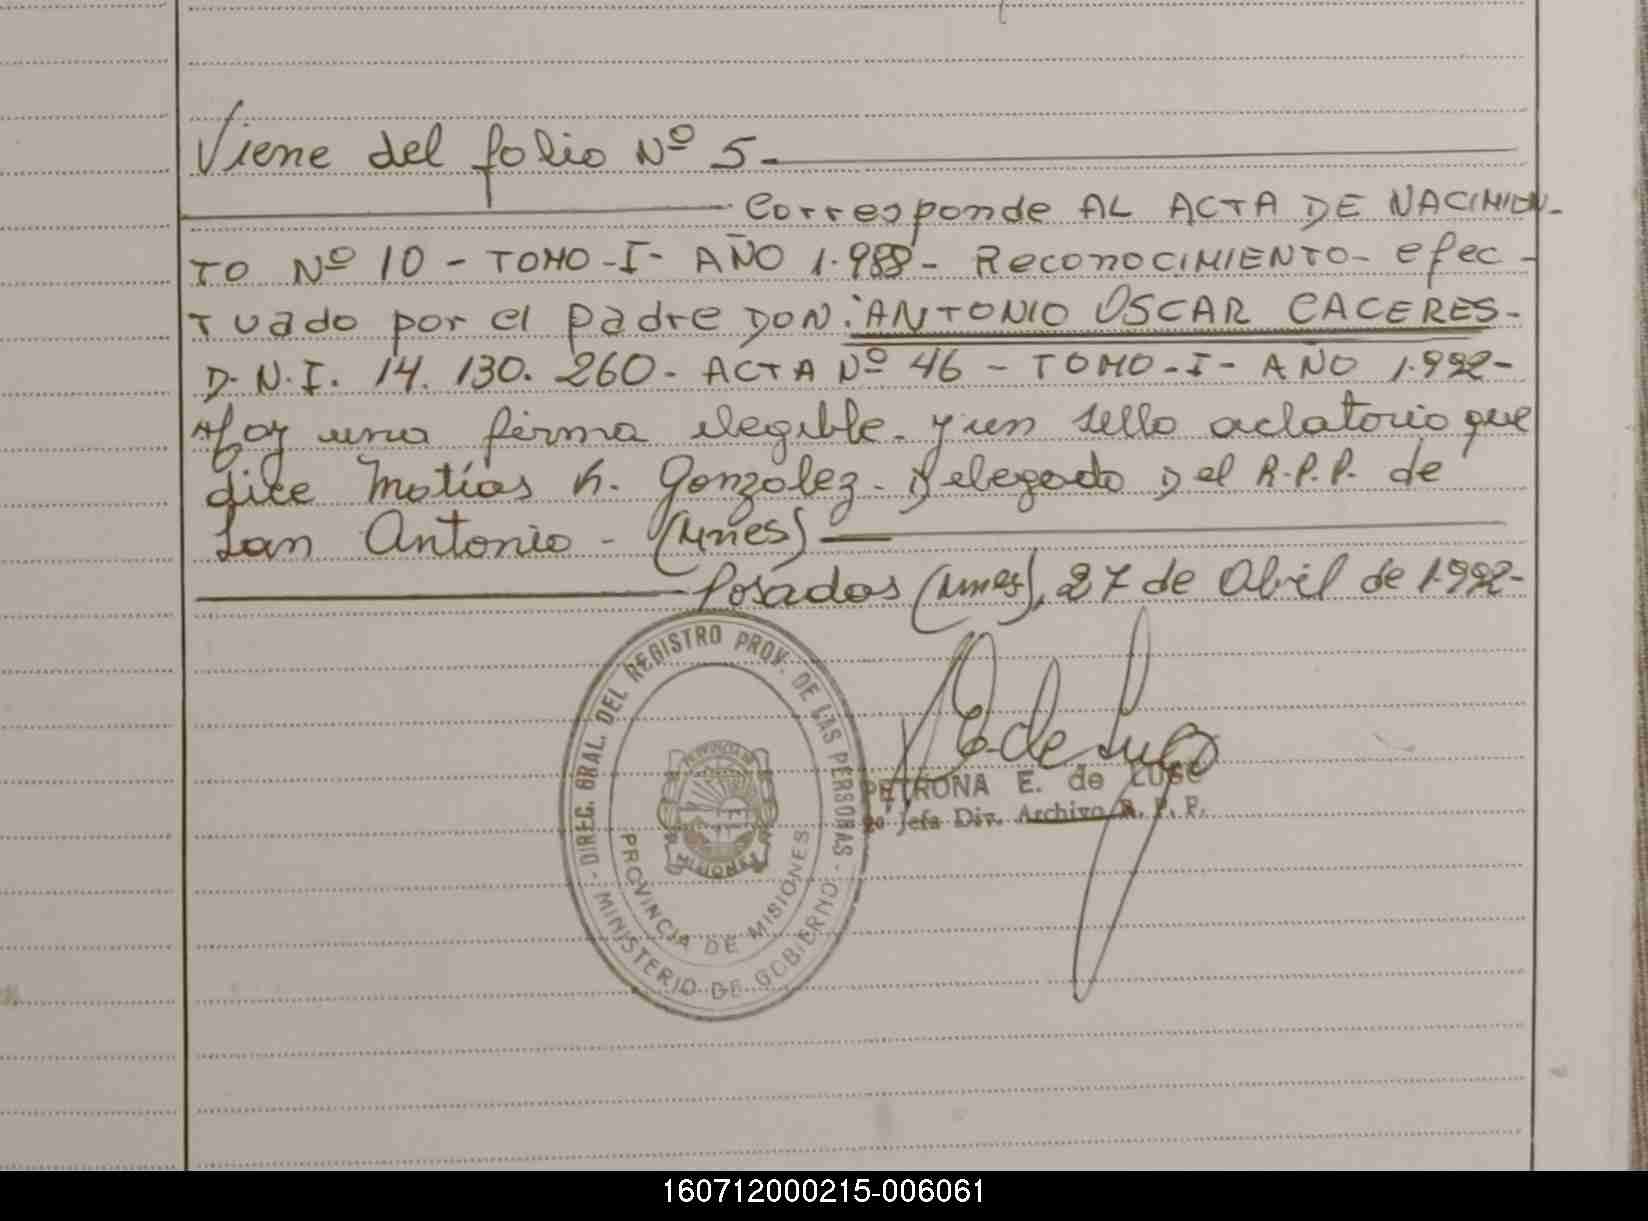 Viene del folio Nº 5-
Corresponde AL ACTA DE NACIMIEN-
TO Nº 10 - TOMO-I- AÑO 1.988- RECONOCIMIENTO- efec-
Tuado por el padre DON: ANTONIO OSCAR CACERES-
D.N.I. 14.130.260- ACTA Nº 46 - TOMO-I- AÑO 1.992-
Hay una firma elegible. y un sello aclatorio que
dice Matías K. González. Delegado Del R.P.P. de
San Antonio - (Mnes)
Posadas (Mnes), 27 de Abril de 1.992-
DIREC. GRAL. DEL REGISTRO PROV. DE LAS PERSONAS -
MINISTERIO DE GOBIERNO
PROVINCIA DE MISIONES
PROVINCIA DE
MISIONES
E. de Lugo
PETRONA E. de LUGO
Jefa Div. Archivo R. P. P.
160712000215-006061